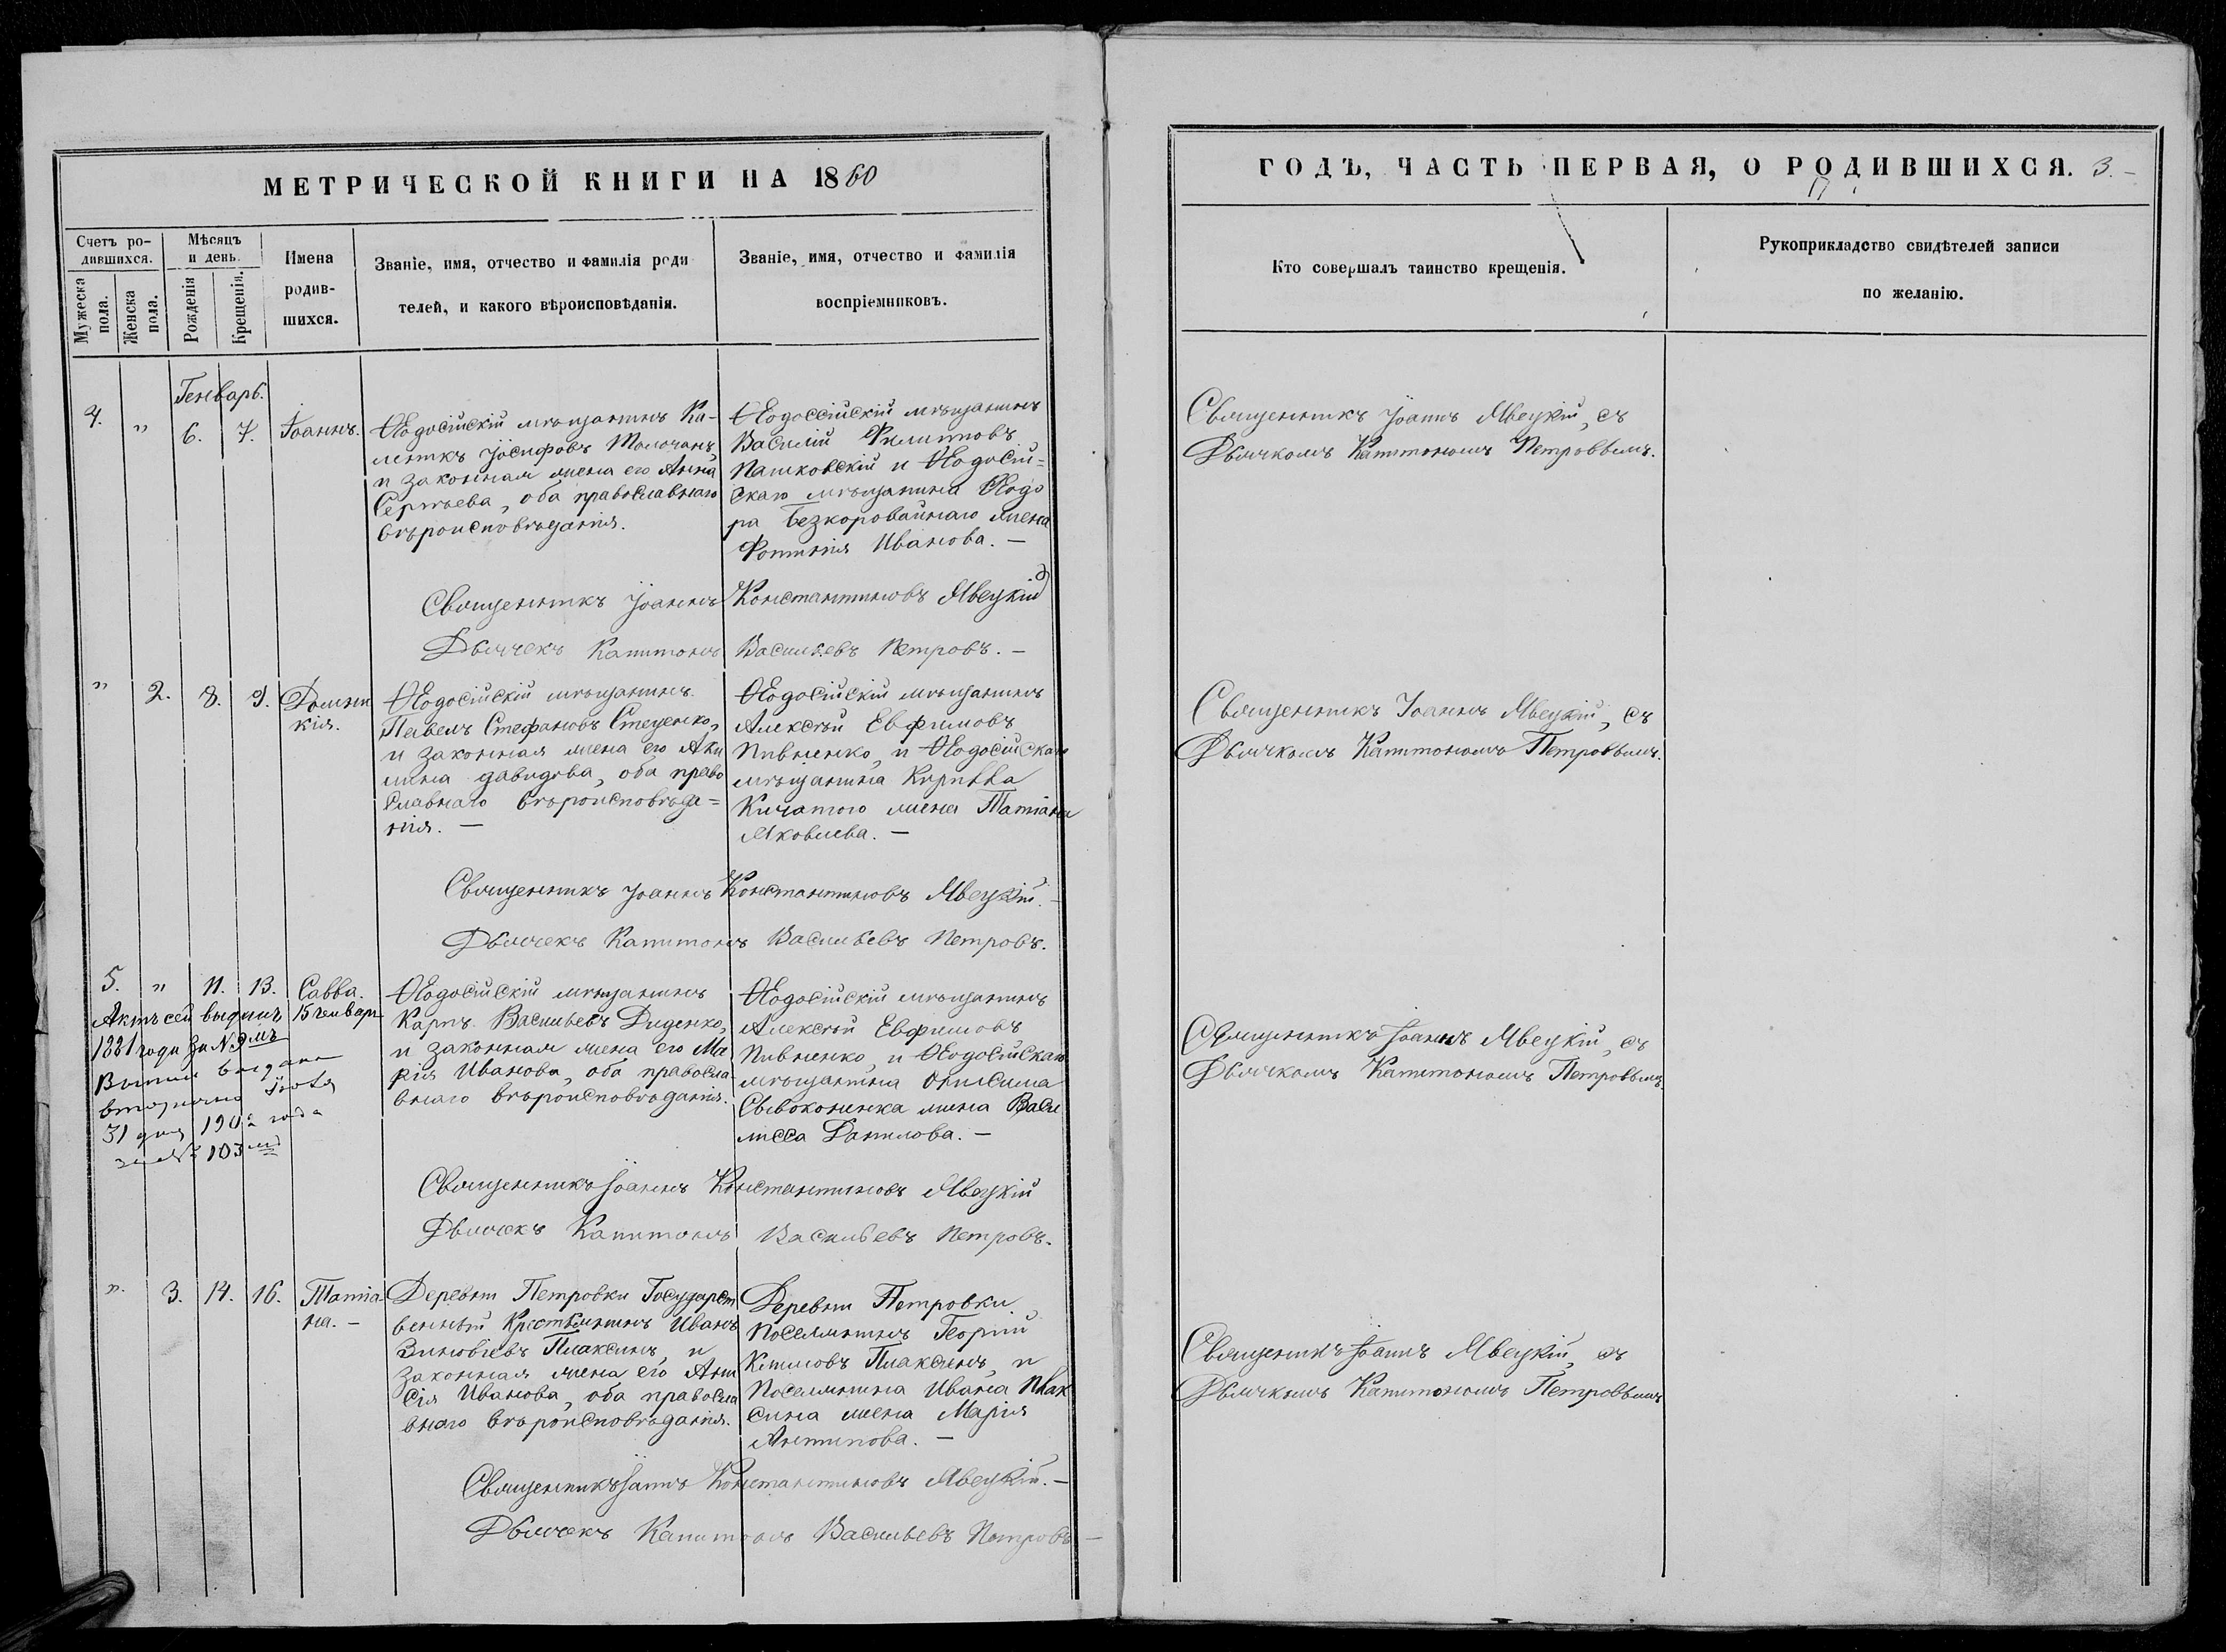 МЕТРИЧЕСКОЙ КНИГИ НА 1860
Счетъ ро-
дившихся.
Мужеска
пола.
Женска
пола.
Мѣсяцъ
и день.
Рожденія
Крещенія.
Имена
родив-
шихся.
Званіе, имя, отчество и фамилія роди
телей, и какого вѣроисповѣданія.
Званіе, имя, отчество и фамилія
воспріемниковъ.
Генварь.
4. " 6. 7. Іоаннъ.
Ѳеодосійскій мѣщанинъ Ка-
и законная жена его Анна
Сергѣева, оба православнаго
вѣроисповѣданія.
Ѳеодоссійскій мѣщанинъ
Василій Филиповъ
Пашковскій и Ѳеодосій=
скаго мѣщанина Ѳеодо
ра Безкоровайнаго жена
Фотинія Иванова. —
Священникъ Іоаннъ Константиновъ Явецкій
Дьячекъ Капитонъ Васильевъ Петровъ. —
" 2. 8. 9. Домни
кія.
Ѳеодосійскій мѣщанинъ
Павелъ Стефановъ Стеценко,
и законная жена его Аки
лина Давидова, оба право
славнаго вѣроисповѣда=
нія. —
Ѳеодосійскій мѣщанинъ
Алексѣй Евфимовъ
Пивненко, и Ѳеодосійскаго
мѣщанина Кирилла
Кичатого жена Татіана
Яковлева. —
Священникъ Іоаннъ Константиновъ Явецкій. —
Дьячекъ Капитонъ Васильевъ Петровъ.
5. " 11. 13. Савва.
Актъ сей выданъ 15 генвар
1881 года за № 9мъ
выдана
вторично Іюля
31 дня 1902 года
за № 103мъ
Ѳеодосійскій мѣщанинъ
Карпъ Васильевъ Диденко,
и законная жена его Ма
рія Иванова, оба правосла
внаго вѣроисповѣданія.
Ѳеодосійскій мѣщанинъ
Алексѣй Евфимовъ
Пивненко, и Ѳеодосійскаго
мѣщанина Онисима
Сывоконенка жена Васи
лисса Данилова. —
Священникъ Іоаннъ Константиновъ Явецкій
Дьячекъ Капитонъ Васильевъ Петровъ.
". 3. 14. 16. Татіа-
на. —
Деревни Петровки Государст
венный Крестьянинъ Иванъ
Зиновіевъ Плаксинъ, и
законная жена его Ани
сія Иванова, оба правосла
внаго вѣроисповѣданія.
Деревни Петровки
поселянинъ Георгій
Плаксинъ, и
Поселянина Ивана Плак
сина жена Марія
Антипова. —
Священникъ Іоаннъ Константиновъ Явецкій. —
Дьячекъ Капитонъ Васильевъ Петровъ —
ГОДЪ, ЧАСТЬ ПЕРВАЯ, О РОДИВШИХСЯ. 3. —
Кто совершалъ таинство крещенія.
Рукоприкладство свидѣтелей записи
по желанію.
Священникъ Іоаннъ Явецкій, съ
Дьячкомъ Капитономъ Петровымъ.
Священникъ Іоаннъ Явецкій, съ
Дьячкомъ Капитономъ Петровымъ.
Священникъ Іоаннъ Явецкій, съ
Дьячкомъ Капитономъ Петровымъ
Священникъ Іоаннъ Явецкій, съ
Дьячкомъ Капитономъ Петровымъ